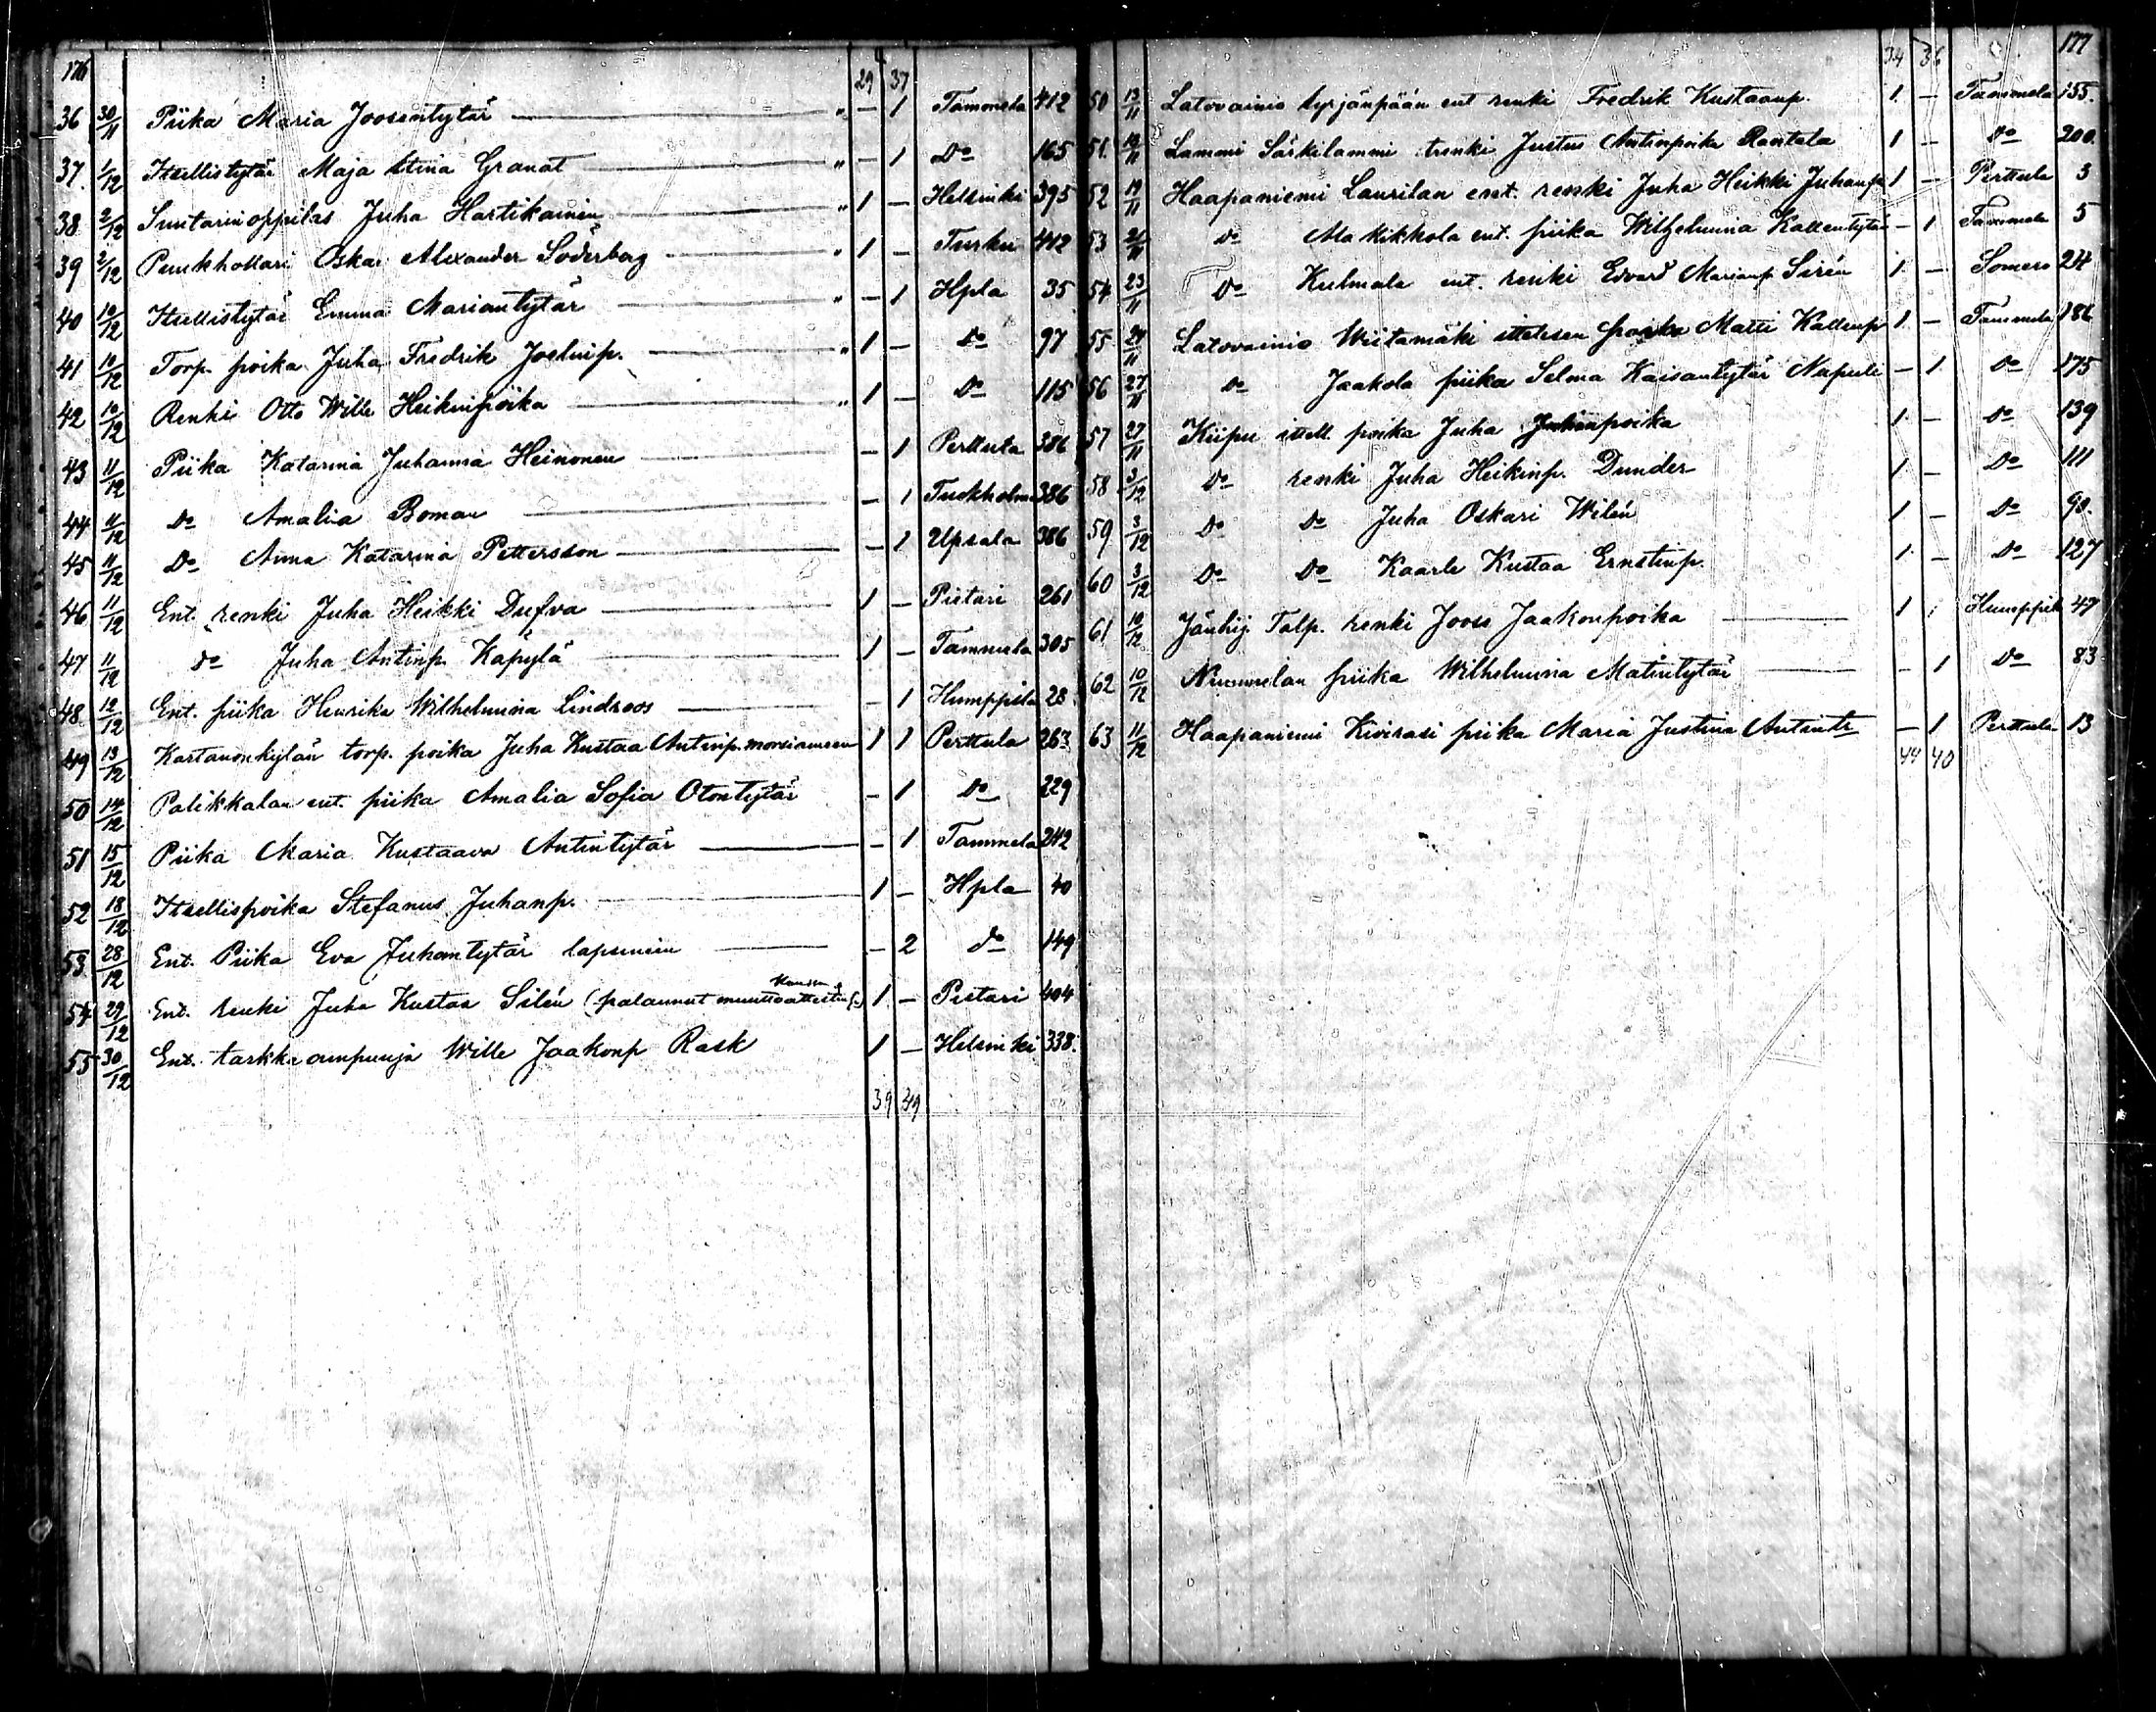 176
29 37
36 30/11 Piika Maria Joosentytär " — 1 Tammela 412
37 1/12 Itsellistytär Maja Stina Granat " — 1 Do 165
38 2/12 Suutarinoppilas Juha Hartikainen " 1 — Helsinki 395
39 2/12 Puukhollari Oskar Alexander Söderbog " 1 — Turku 412
40 10/12 Itsellistytär Emma Mariantytär " — 1 Hpla 35
41 10/12 Torp. poika Juha Fredrik Joelinp. " 1 — Do 97
42 10/12 Renki Otto Wille Heikinpoika " 1 — Do 115
43 11/12 Piika Katarina Juhanna Heinonen — 1 Perttula 386
44 11/12 Do Amalia Boman — 1 Tuckholma 386
45 11/12 Do Anna Katarina Pettersson — 1 Upsala 386
46 11/12 Ent. renki Juha Heikki Dufva 1 — Pietari 261
47 11/12 do Juha Antinp. Kapylä 1 — Tammela 305
48 12/12 Ent. piika Henrika Wilhelmina Lindroos — 1 Humppila 28
49 13/12 Kartanonkylän torp. poika Juha Kustaa Antinp. morsiamen 1 1 Perttula 263
50 14/12 Palikkalan ent. piika Amalia Sofia Otontytär — 1 Do 229
51 15/12 Piika Maria Kustaava Antintytär — 1 Tammela 242
52 18/12 Itsellispoika Stefanus Juhanp. 1 — Hpla 40
53 28/12 Ent. Piika Eva Juhontytär lapsineen — 2 do 149
54 29/12 Ent. renki Juha Kustaa Silén (palannut muuttoattestin kanssa) 1 — Pietari 404
55 30/12 Ent. tarkk'ampuuja Wille Jaakonp Rask 1 — Helsinki 338.
39 49
177
34 36
50 13/11 Latovainio Syrjänpään ent renki Fredrik Kustaanp. 1 — Tammela 155.
51. 19/11 Lammi Särkilammi trenki Justus Antinpoika Rantala 1 — Do 200.
52 19/11 Haapaniemi Laurilan ent. renki Juha Heikki Juhanp. 1 — Perttula 3
53 21/11 Do Ala Kikkola ent. piika Wilhelmina Kallentytär — 1 Tammela 5
54 23/11 Do Kulmala ent. renki Edvard Marianp Sirén 1 — Somero 24
55 24/11 Latovainio Wiitamäki ittelisen poika Matti Kallenp 1 — Tammela 186
56 27/11 Do Jaakola piika Selma Kaisantytär — 1 Do 175
57 27/11 Kiipu ittell. poika Juha Juhanpoika 1 — Do 139
58 3/12 Do renki Juha Heikinp. Dunder 1 — Do 111
59 3/12 Do Do Juha Oskari Wilén 1 — Do 90.
60 3/12 Do Do Kaarle Kustaa Ernstinp. 1 — Do 127
61 10/12 Jänhij. Talp. renki Joose Jaakonpoika 1 Humppila 47
62 10/12 Nummelan piika Wilhelmina Matintytär — 1 Do 83
63 11/12 Haapaniemi Kivirasi piika Maria Justina Antint. — 1 Perttula 13
44 40